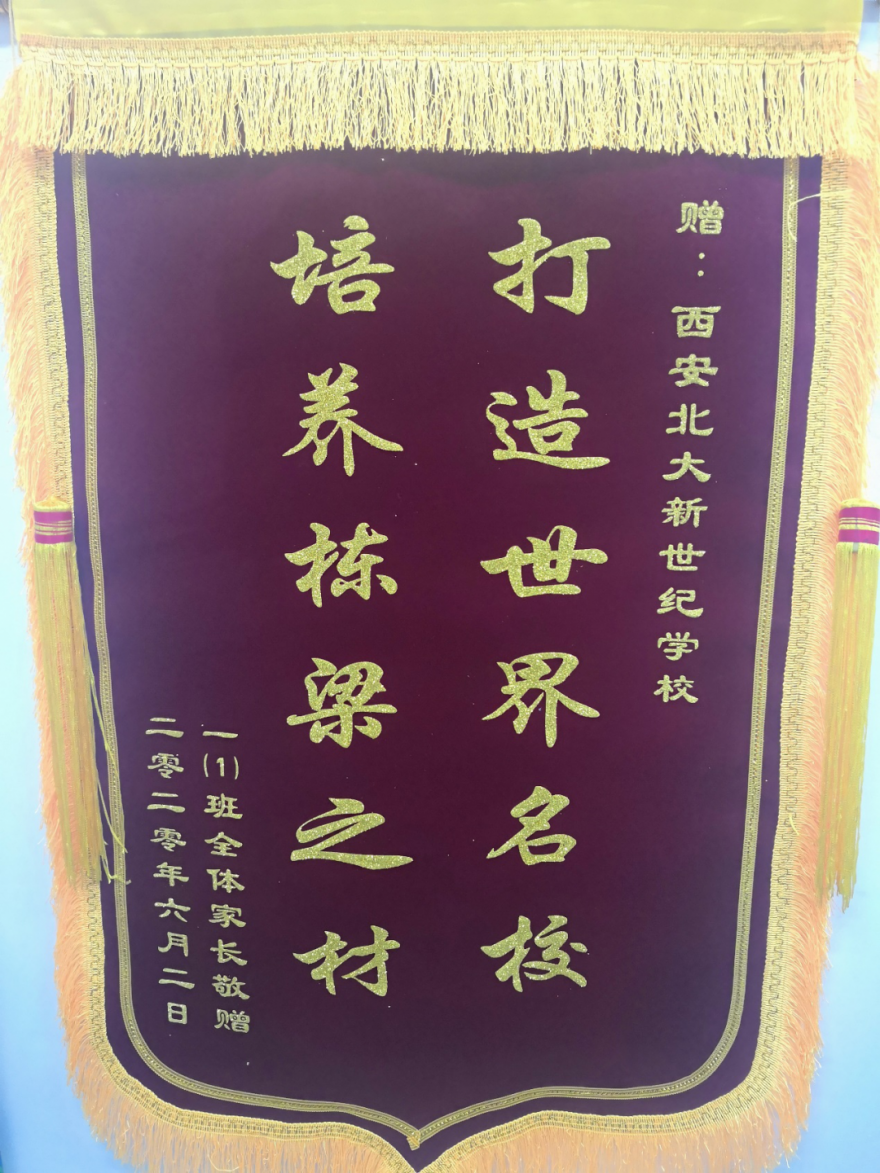 赠：西安北大新世纪学校
打造世界名校
培养栋梁之材
一(1)班全体家长敬赠
二零二零年六月二日